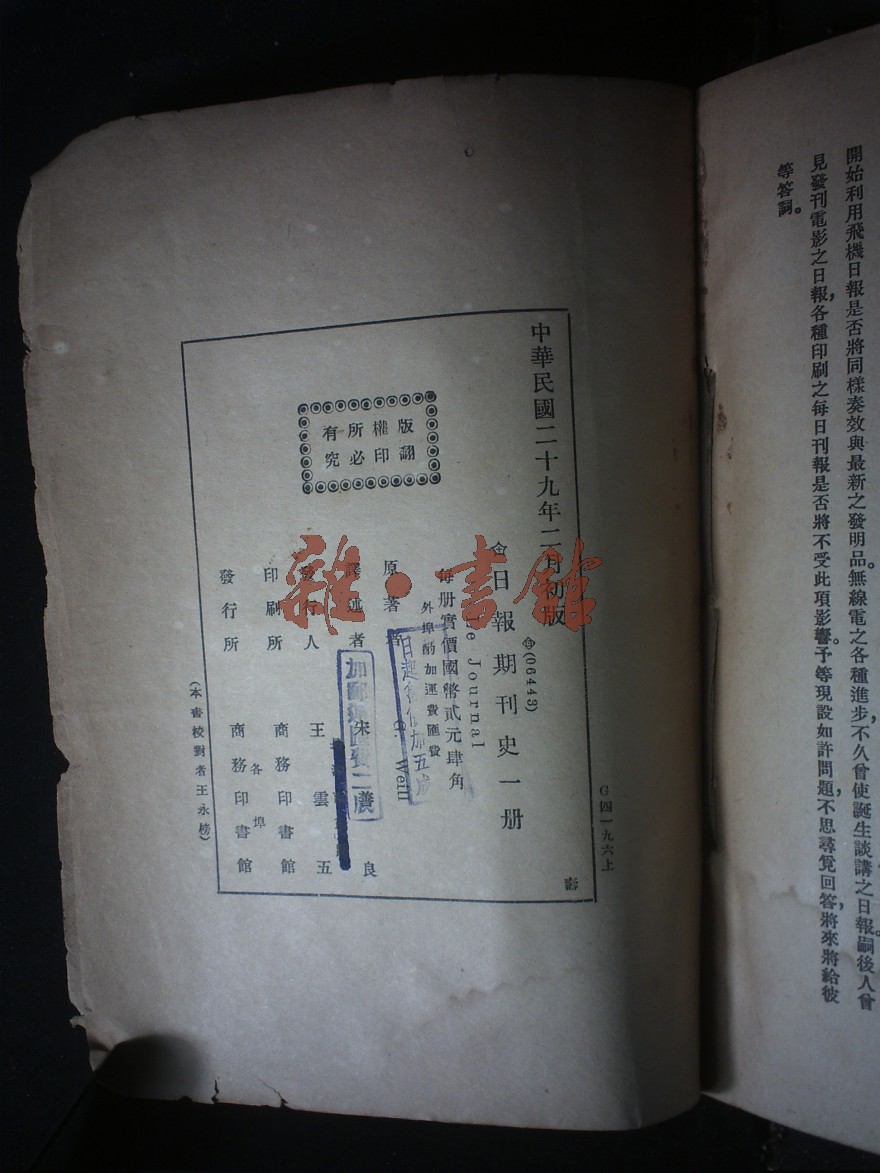 開始利用飛機日報是否將同樣奏效與最新之發明品。無線電之各種進步，不久曾使誕生談講之日報。嗣後人曾
見發刊電影之日報，各種印刷之每日刊報是否將不受此項影響。予等現設如許問題，不思尋覓回答，將來將給彼
等答詞。
G四一九六上
中華民國二十九年二月初版
(06443)
日報期刊史一冊
Le Journal
每冊實價國幣貳元肆角
外埠酌加運費匯費
原著者 G. Weill
譯述者 宋善良
發行人 王雲五
印刷所 商務印書館
發行所 各埠 商務印書館
(本書校對者王永榜)
版權所有
翻印必究
加五成
雜·書館